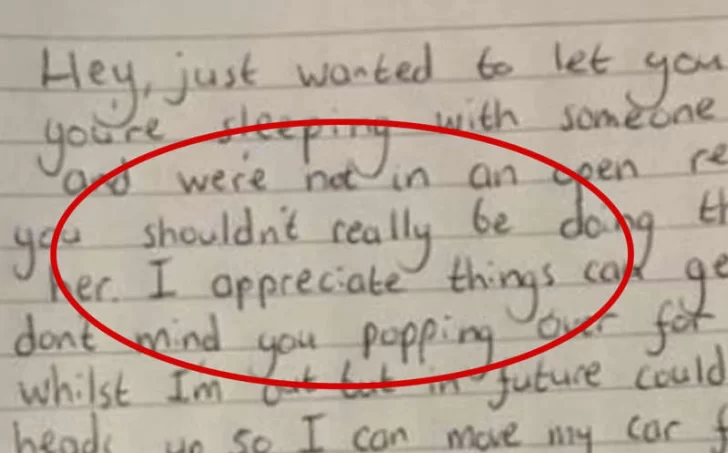 Hey, just wanted to let you
you're sleeping with someone
and we're not in an open re
you shouldn't really be doing th
her. I appreciate things can ge
dont mind you popping over for
whilst I'm out but in future could
heads up so I can move my car f